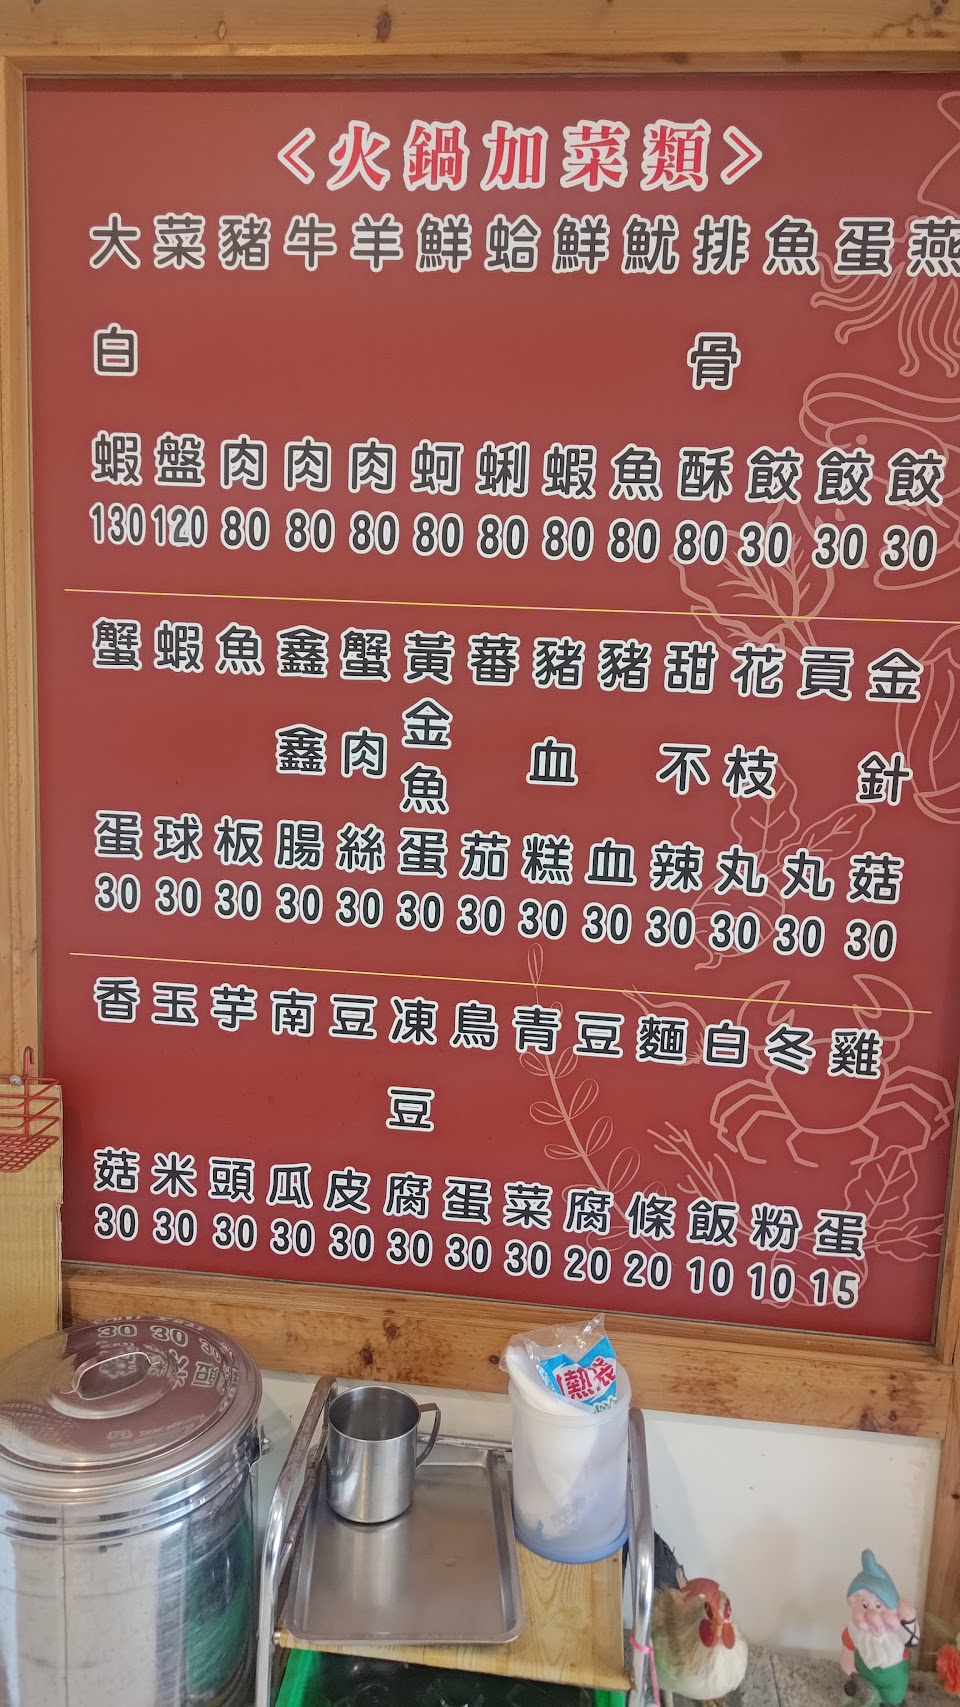 <火鍋加菜類>
大白蝦 130
菜盤 120
豬肉 80
牛肉 80
羊肉 80
鮮蚵 80
蛤蜊 80
鮮蝦 80
魷魚 80
排骨酥 80
魚餃 30
蛋餃 30
燕餃 30
蟹蛋 30
蝦球 30
魚板 30
鑫鑫腸 30
蟹肉絲 30
黃金魚蛋 30
蕃茄 30
豬血糕 30
豬血 30
甜不辣 30
花枝丸 30
貢丸 30
金針菇 30
香菇 30
玉米 30
芋頭 30
南瓜 30
豆皮 30
凍豆腐 30
鳥蛋 30
青菜 30
豆腐 20
麵條 20
白飯 10
冬粉 10
雞蛋 15